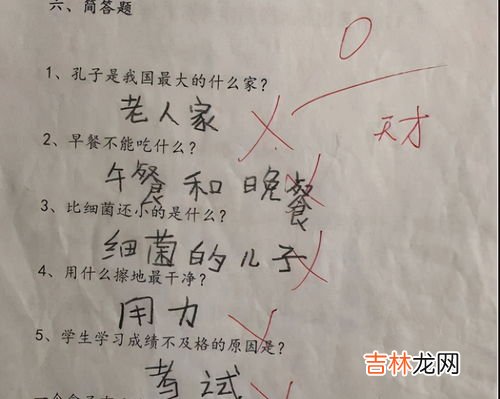 六、简答题
0
1、孔子是我国最大的什么家?
老人家
天才
2、早餐不能吃什么?
午餐和晚餐
3、比细菌还小的是什么?
细菌的儿子
4、用什么擦地最干净?
用力
5、学生学习成绩不及格的原因是?
考试
吉林龙网